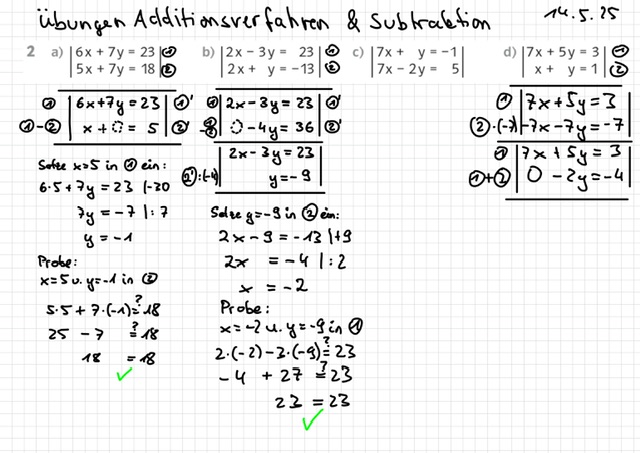 Übungen Additionsverfahren & Subtraktion
14.5.25
2 a) |6x + 7y = 23| ①
|5x + 7y = 18| ②
① |6x+7y=23| ①'
①-② |x + 0 = 5| ②'
Setze x=5 in ① ein:
6·5+7y = 23 |-30
7y = -7 |:7
y = -1
Probe:
x=5 u. y=-1 in ②
5·5 + 7·(-1) ≟ 18
25 - 7 ≟ 18
18 = 18
✓
b) |2x − 3y = 23| ①
|2x + y = −13| ②
① |2x-3y = 23| ①'
①-② |0 -4y = 36| ②'
|2x-3y = 23|
②':(-4) |y=-9|
Setze y=-9 in ② ein:
2x - 9 = -13 |+9
2x = -4 |:2
x = -2
Probe:
x=-2 u. y=-9 in ①
2·(-2)-3·(-9) ≟ 23
-4 + 27 ≟ 23
23 = 23
✓
c) |7x + y = −1|
|7x − 2y = 5|
d) |7x + 5y = 3| ①
|x + y = 1| ②
① |7x+5y=3|
②·(-7) |-7x-7y=-7|
① |7x+5y=3|
①+② |0 -2y=-4|